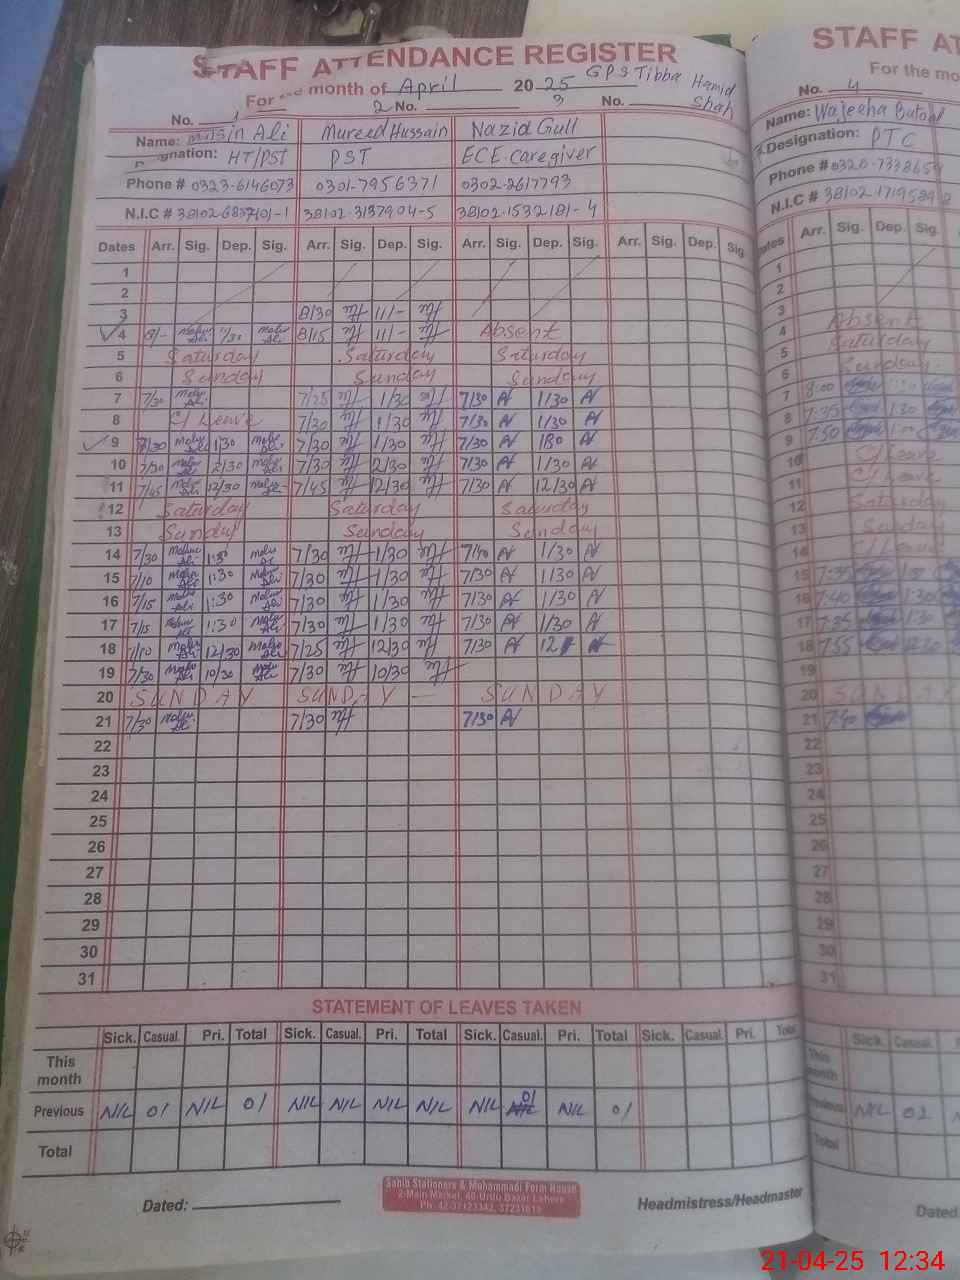 STAFF ATTENDANCE REGISTER
For the month of April 2025 GPS Tibba Hamid Shah
No. 1 2 No. 3 No.
Name: Mohsin Ali Mureed Hussain Nazia Gull
Designation: HT/PST PST ECE. caregiver
Phone # 0323-6146073 0301-7956371 0302-2617793
N.I.C # 38102-6837401-1 38102-3137904-5 38102-1532181-4
Dates Arr. Sig. Dep. Sig. Arr. Sig. Dep. Sig. Arr. Sig. Dep. Sig. Arr. Sig. Dep. Sig
1
2
3 8/30 11/-
4 8/- 11/30 8/15 11/- Absent
5 Saturday Saturday Saturday
6 Sunday Sunday Sunday
7 7/30 7/25 1/30 7/30 1/30
8 C/ Leave 7/30 1/30 7/30 1/30
9 7/30 1:30 7/30 1/30 7/30
10 7/30 7/30 7/30 1/30
11 7/45 12/30 7/45 12/30 7/30 12/30
12 Saturday Saturday Saturday
13 Sunday Sunday Sunday
14 7/30 1:30 7/30 1/30 7/40 1/30
15 7/10 1:30 7/30 1/30 7/30 1/30
16 7/15 1:30 7/30 1/30 7/30 1/30
17 7/15 1:30 7/30 1/30 7/30 1/30
18 7/10 12/30 7/25 12/30 7/30
19 7/30 10/30 7/30 10/30
20 SUNDAY SUNDAY — SUNDAY
21 7/30 7/30 7/30
22
23
24
25
26
27
28
29
30
31
STATEMENT OF LEAVES TAKEN
Sick. Casual. Pri. Total Sick. Casual. Pri. Total Sick. Casual. Pri. Total Sick. Casual. Pri. Total
This month
Previous NIL 01 NIL 01 NIL NIL NIL NIL NIL 01 NIL 01
Total
Dated: Headmistress/Headmaster
Sahib Stationers & Muhammadi Form House
2-Main Market, 40-Urdu Bazar Lahore
Ph: 42-37123342, 37231019
STAFF AT
For the mo
No. 4
Name: Wajeeha Batool
Designation: PTC
Phone # 0320-7338659
N.I.C # 38102-1719589
Dates Arr. Sig. Dep. Sig.
1
2
3
4 Absent
5 Saturday
6 Sunday
7 8:00
8 7:35 1:30
9 7:50 1:00
10 C/ Leave
11 C/ Leave
12 Saturday
13 Sunday
14 C/ Leave
15 7:35
16 7:40 1:30
17 7:35 1:30
18 7:55 12:30
19
20 SUNDAY
21 7:40
22
23
24
25
26
27
28
29
30
31
Sick. Casual.
This month
Previous NIL 02
Total
Dated:
21-04-25 12:34